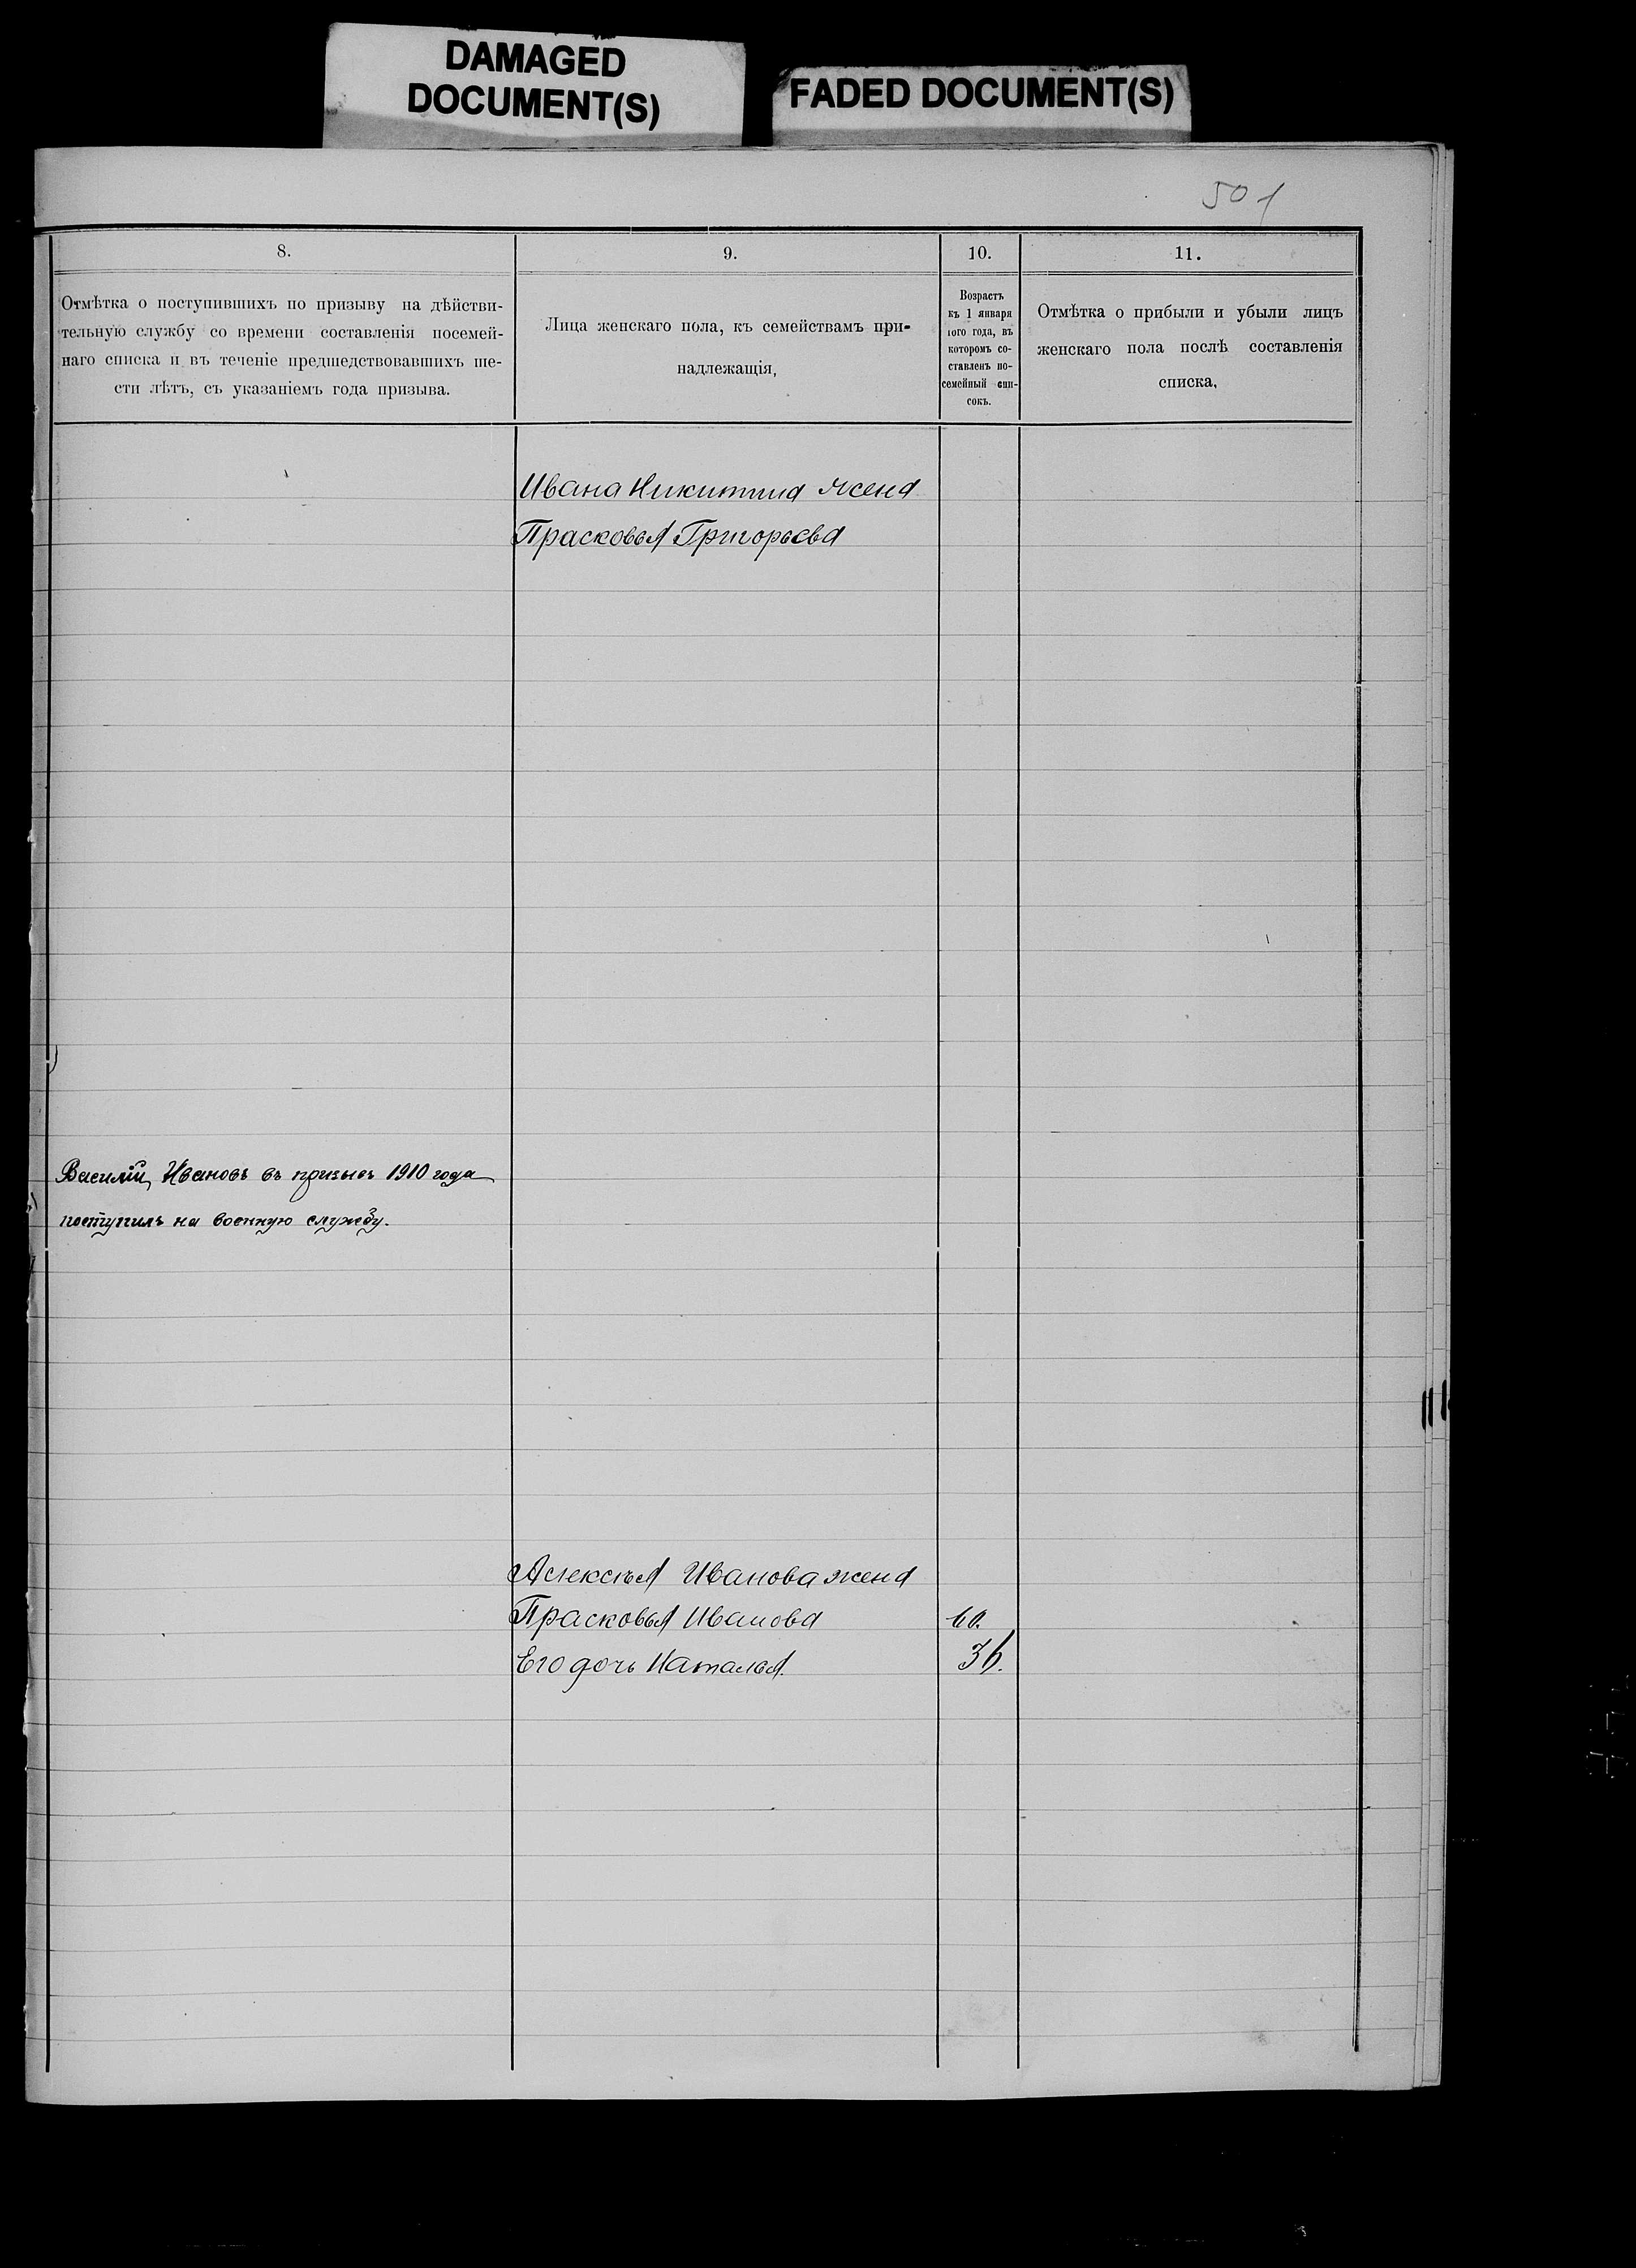 DAMAGED
DOCUMENT(S)
FADED DOCUMENT(S)
501
8.
9.
10.
11.
Отмѣтка о поступившихъ по призыву на дѣйстви-
тельную службу со времени составленія посемей-
наго списка и въ теченіе предшедствовавшихъ ше-
сти лѣтъ, съ указаніемъ года призыва.
Лица женскаго пола, къ семействамъ при-
надлежащія,
Возрастъ
къ 1 января
того года, въ
которомъ со-
ставленъ по-
семейный спи-
сокъ.
Отмѣтка о прибыли и убыли лицъ
женскаго пола послѣ составленія
списка,
Ивана Никитина жена
Прасковья Григорьева
Василій Ивановъ въ призывъ 1910 года
поступилъ на военную службу.
Алексѣя Иванова жена
Прасковья Иванова 60.
Его дочь Наталья. 36.